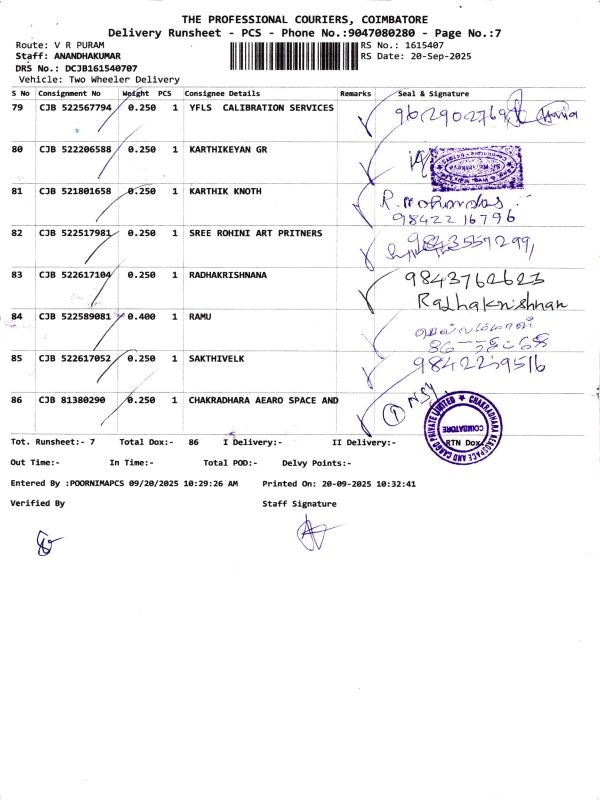 THE PROFESSIONAL COURIERS, COIMBATORE
Delivery Runsheet - PCS - Phone No.:9047080280 - Page No.:7
Route: V R PURAM
RS No.: 1615407
Staff: ANANDHAKUMAR
RS Date: 20-Sep-2025
DRS No.: DCJB161540707
Vehicle: Two Wheeler Delivery
S No Consignment No Weight PCS Consignee Details Remarks Seal & Signature
79 CJB 522567794 0.250 1 YFLS CALIBRATION SERVICES
962902769
80 CJB 522206588 0.250 1 KARTHIKEYAN GR
81 CJB 521801658 0.250 1 KARTHIK KNOTH R. mohandas
9842216796
82 CJB 522517981 0.250 1 SREE ROHINI ART PRITNERS 9843557299
83 CJB 522617104 0.250 1 RADHAKRISHNANA 9843762623
Radhakrishnan
84 CJB 522589081 0.400 1 RAMU
85 CJB 522617052 0.250 1 SAKTHIVELK 9842239516
86 CJB 81380290 0.250 1 CHAKRADHARA AEARO SPACE AND
CHAKRADHARA AEROSPACE AND CARGO PRIVATE LIMITED
COIMBATORE
Tot. Runsheet:- 7 Total Dox:- 86 I Delivery:- II Delivery:- RTN Dox
Out Time:- In Time:- Total POD:- Delvy Points:-
Entered By :POORNIMAPCS 09/20/2025 10:29:26 AM Printed On: 20-09-2025 10:32:41
Verified By Staff Signature